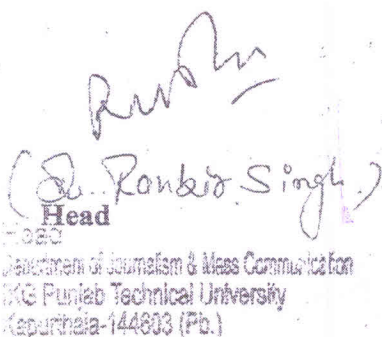 (Dr. Ranbir Singh.)
Head
Head
Department of Journalism & Mass Communication
IKG Punjab Technical University
Kapurthala-144603 (Pb.)